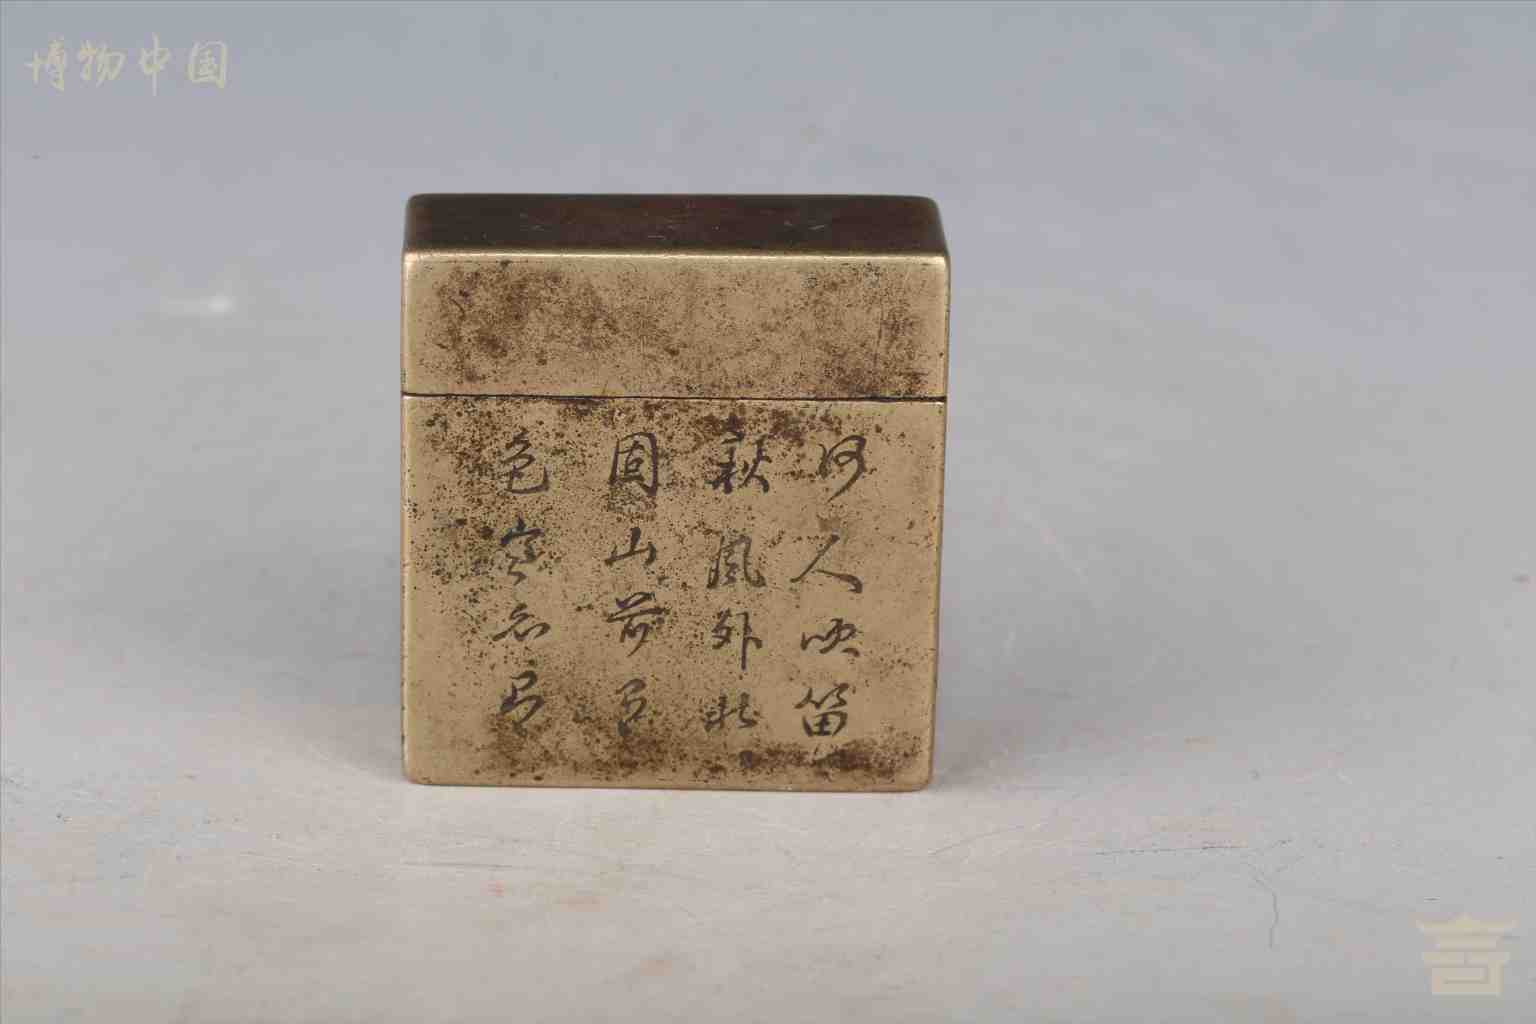 博物中国
何人吹笛
秋風外北
固山前月
色寒